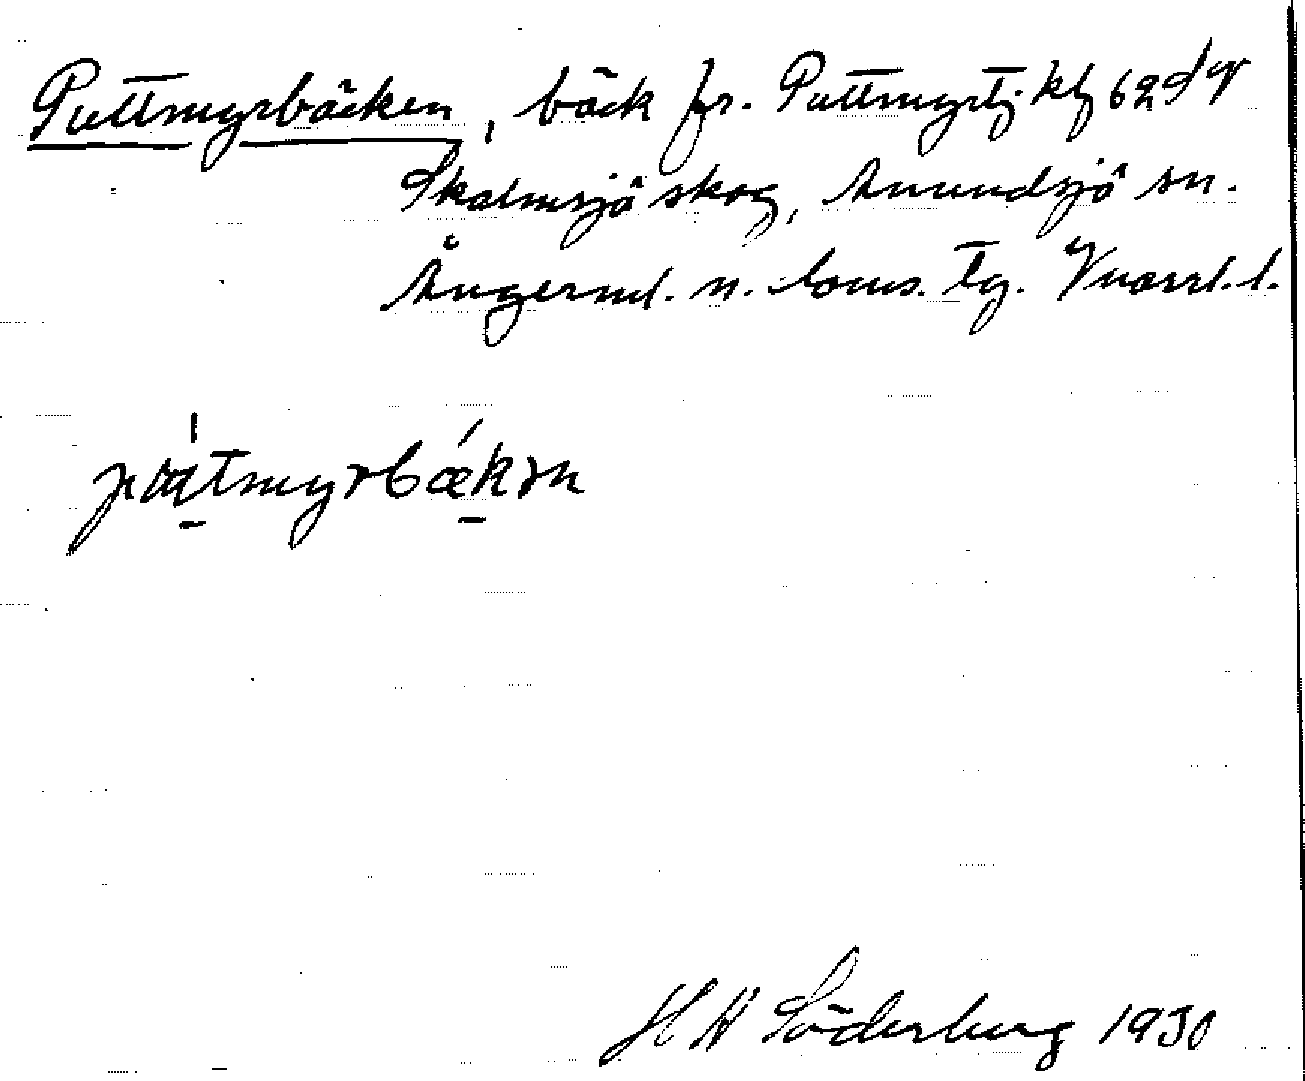 Puttmyrbäcken, bäck fr. Puttmyrtj kbl 62 SV
Skalmsjö skog, Anundsjö sn.
Ångerml. n. doms. tg. Vnorrl. l.
pɯtmyrbækən
H W Söderberg 1930